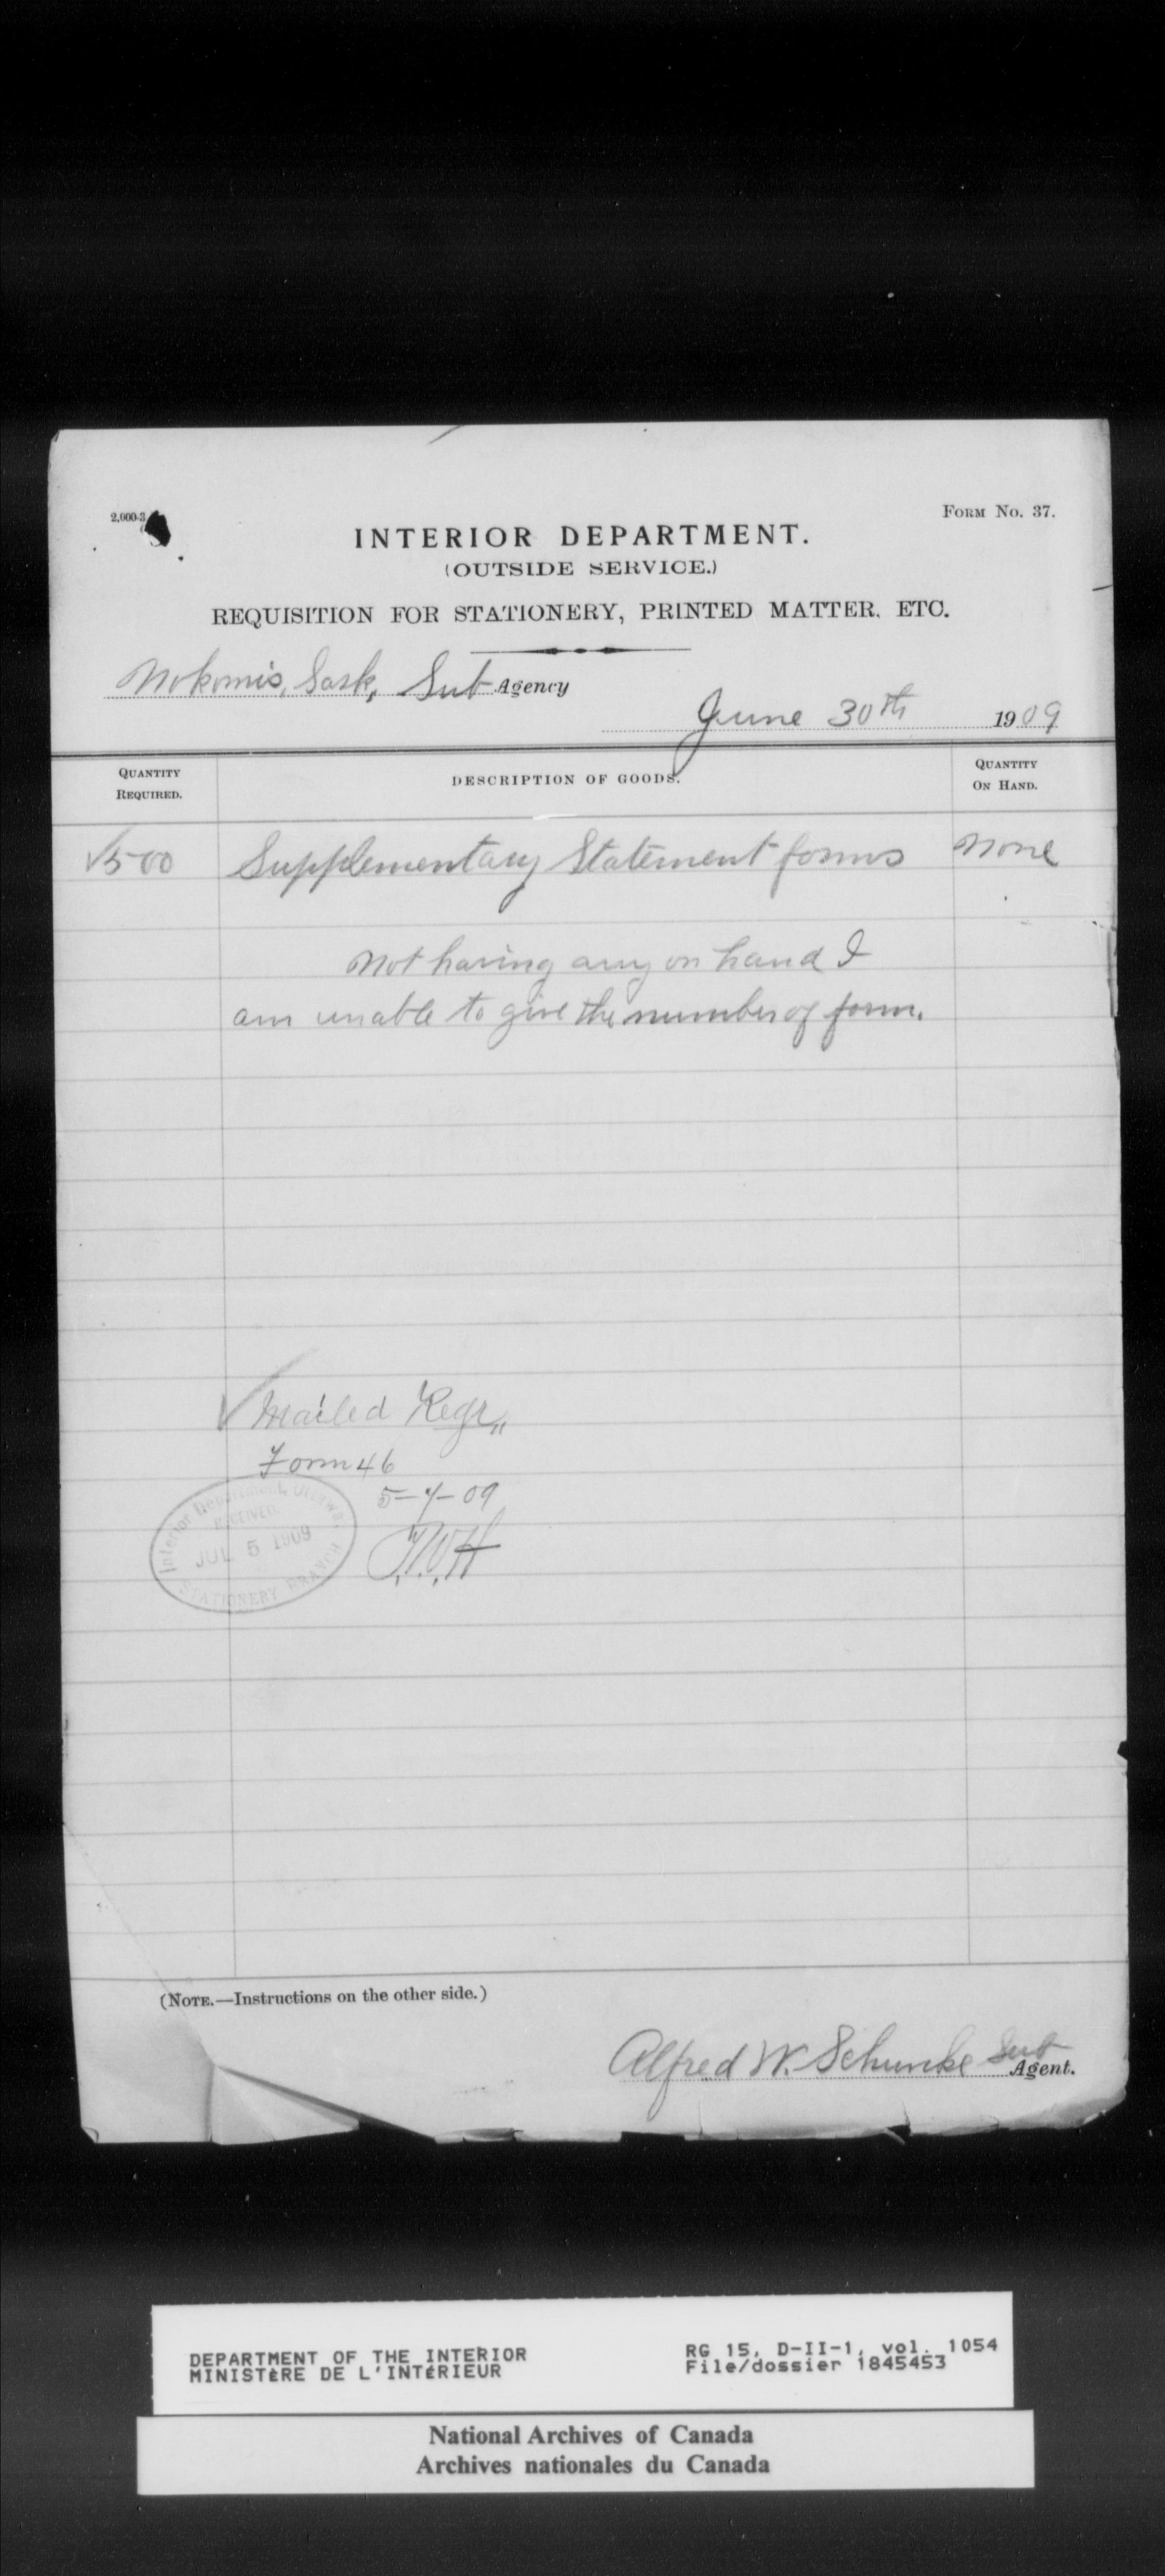 2,000-3
Form No. 37.
INTERIOR DEPARTMENT.
(OUTSIDE SERVICE.)
REQUISITION FOR STATIONERY, PRINTED MATTER, ETC.
Nokomis, Sask, Sub Agency
June 30th 1909
Quantity Required.
DESCRIPTION OF GOODS.
Quantity On Hand.
√500 Supplementary Statement forms None
Not having any on hand I
am unable to give the number of form.
√ Mailed Regr,,
Form 46
5-7-09
Interior Department, Ottawa.
RECEIVED
JUL 5 1909
STATIONERY BRANCH
T.W.H
(Note.—Instructions on the other side.)
Alfred W. Schunke Sub
Agent.
DEPARTMENT OF THE INTERIOR
MINISTÈRE DE L'INTÉRIEUR
RG 15, D-II-1, vol. 1054
File/dossier 1845453
National Archives of Canada
Archives nationales du Canada